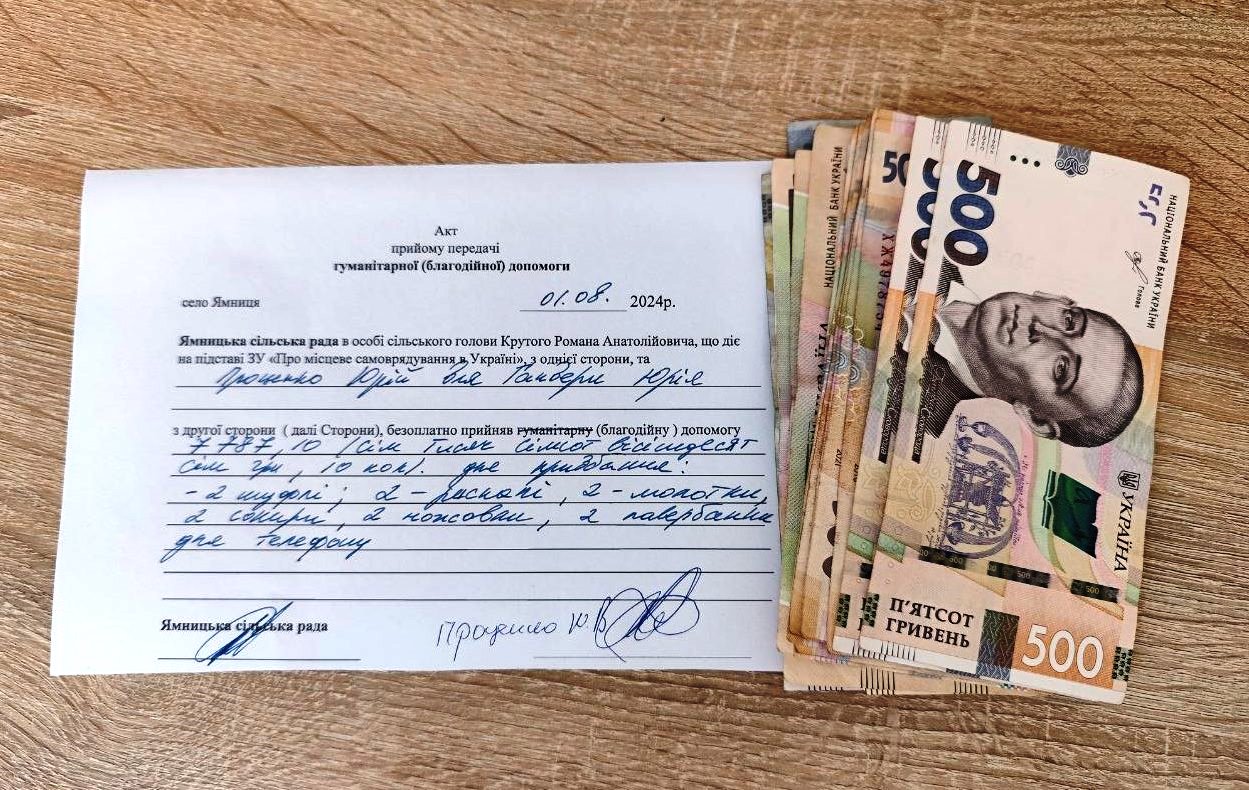 Акт
прийому передачі
гуманітарної (благодійної) допомоги
село Ямниця 01.08. 2024р.
Ямницька сільська рада в особі сільського голови Крутого Романа Анатолійовича, що діє
на підставі ЗУ «Про місцеве самоврядування в Україні», з однієї сторони, та
Проценко Юрій для Гамбери Юрія
з другої сторони ( далі Сторони), безоплатно прийняв гуманітарну (благодійну ) допомогу
7 787,10 /сім тисяч сімсот вісімдесят
сім грн, 10 коп/. для придбання:
- 2 шуфлі; 2 - , 2 - молотки,
2 сокири, 2 ножовки, 2 павербанки
для телефону
Ямницька сільська рада
Проценко Ю.В
НАЦІОНАЛЬНИЙ БАНК УКРАЇНИ
2021
50
500
500
НАЦІОНАЛЬНИЙ БАНК УКРАЇНИ
Голова
УКРАЇНА
П'ЯТСОТ
ГРИВЕНЬ
500